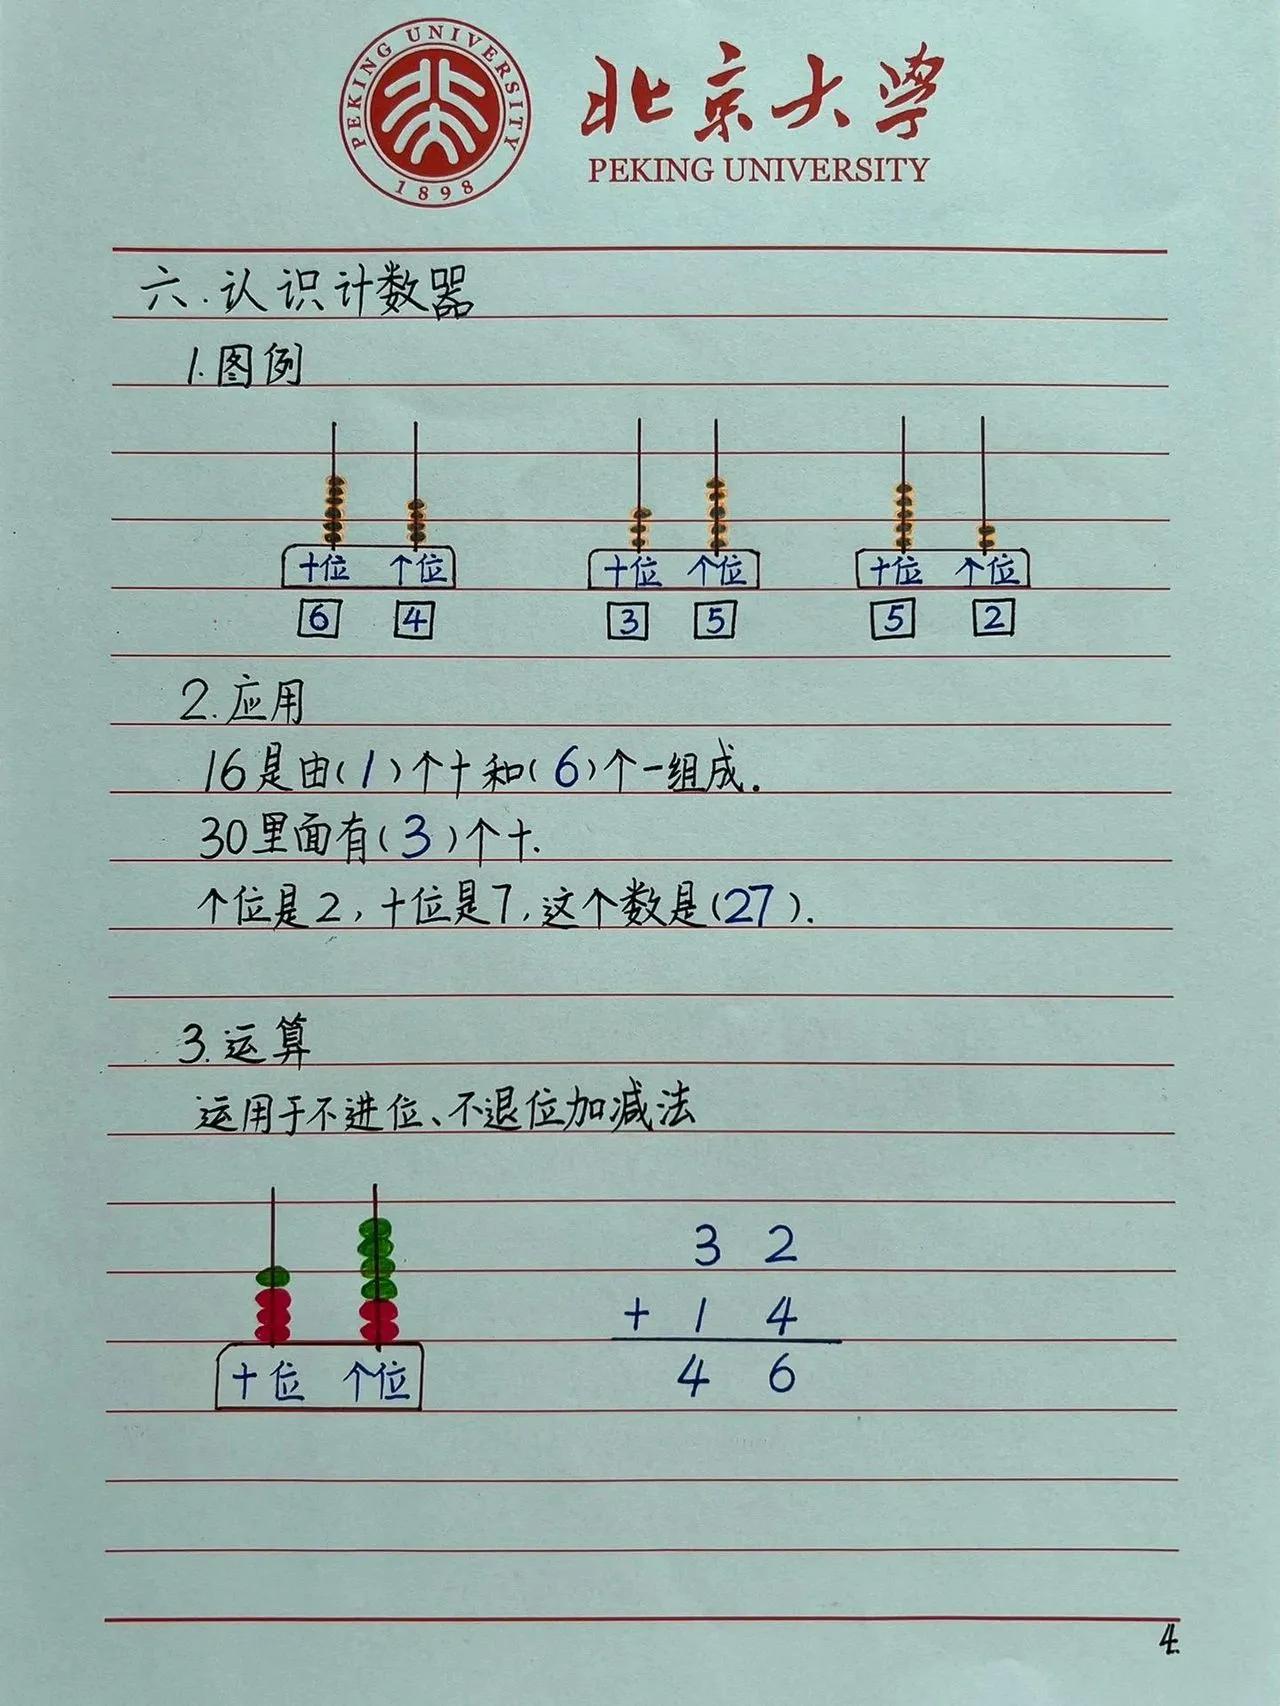 PEKING UNIVERSITY
1898
北京大学
PEKING UNIVERSITY
六.认识计数器
1.图例
十位 个位 十位 个位 十位 个位
6 4 3 5 5 2
2.应用
16是由(1)个十和(6)个一组成.
30里面有(3)个十.
个位是2,十位是7,这个数是(27).
3.运算
运用于不进位、不退位加减法
3 2
+ 1 4
十位 个位 4 6
4.